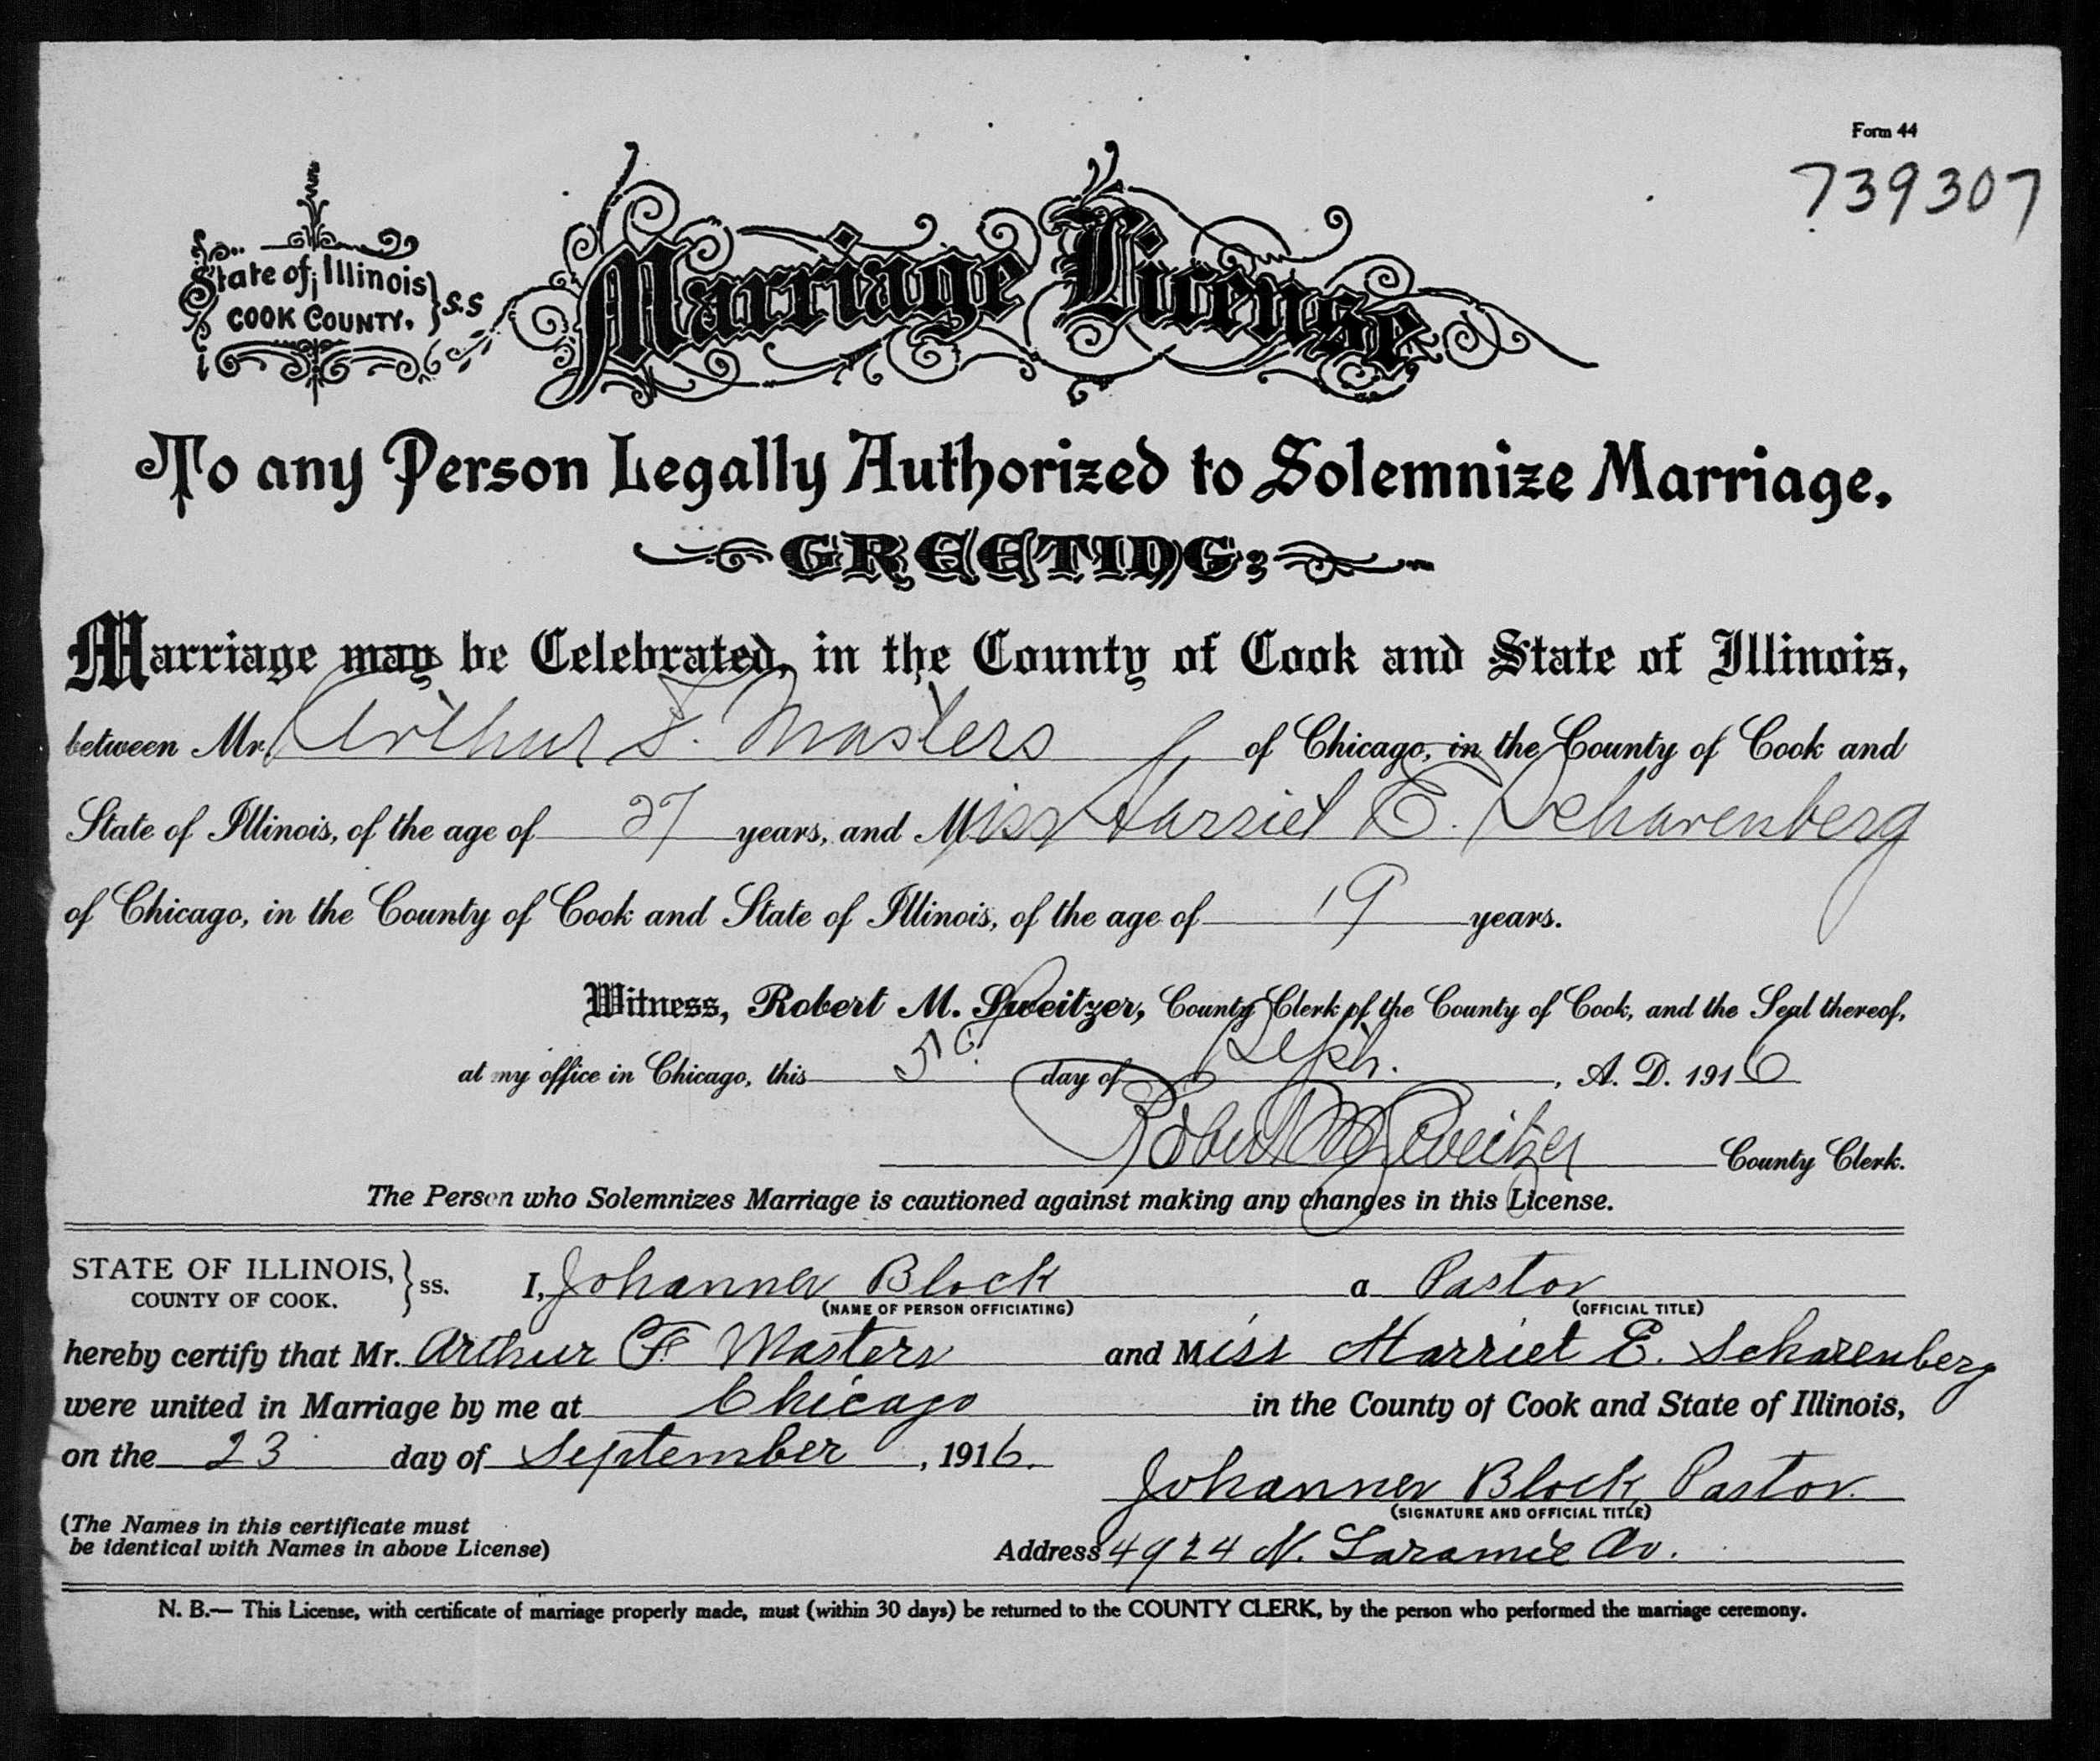 Form 44
739307
State of Illinois } S.S
COOK COUNTY.
Marriage License
To any Person Legally Authorized to Solemnize Marriage,
GREETING:
Marriage may be Celebrated, in the County of Cook and State of Illinois,
between Mr. Arthur F. Masters of Chicago, in the County of Cook and
State of Illinois, of the age of 27 years, and Miss Harriet E. Scharenberg
of Chicago, in the County of Cook and State of Illinois, of the age of 19 years.
Witness, Robert M. Sweitzer, County Clerk of the County of Cook, and the Seal thereof,
at my office in Chicago, this day of Sept. , A. D. 1916
Robert M Sweitzer County Clerk.
The Person who Solemnizes Marriage is cautioned against making any changes in this License.
STATE OF ILLINOIS, } ss. I, Johannes Block a Pastor
COUNTY OF COOK. (NAME OF PERSON OFFICIATING) (OFFICIAL TITLE)
hereby certify that Mr. Arthur F. Masters and Miss Harriet E. Scharenberg
were united in Marriage by me at Chicago in the County of Cook and State of Illinois,
on the 23 day of September , 1916.
Johannes Block, Pastor.
(SIGNATURE AND OFFICIAL TITLE)
(The Names in this certificate must
be identical with Names in above License)
Address 4924 N. Laramie Av.
N. B.— This License, with certificate of marriage properly made, must (within 30 days) be returned to the COUNTY CLERK, by the person who performed the marriage ceremony.